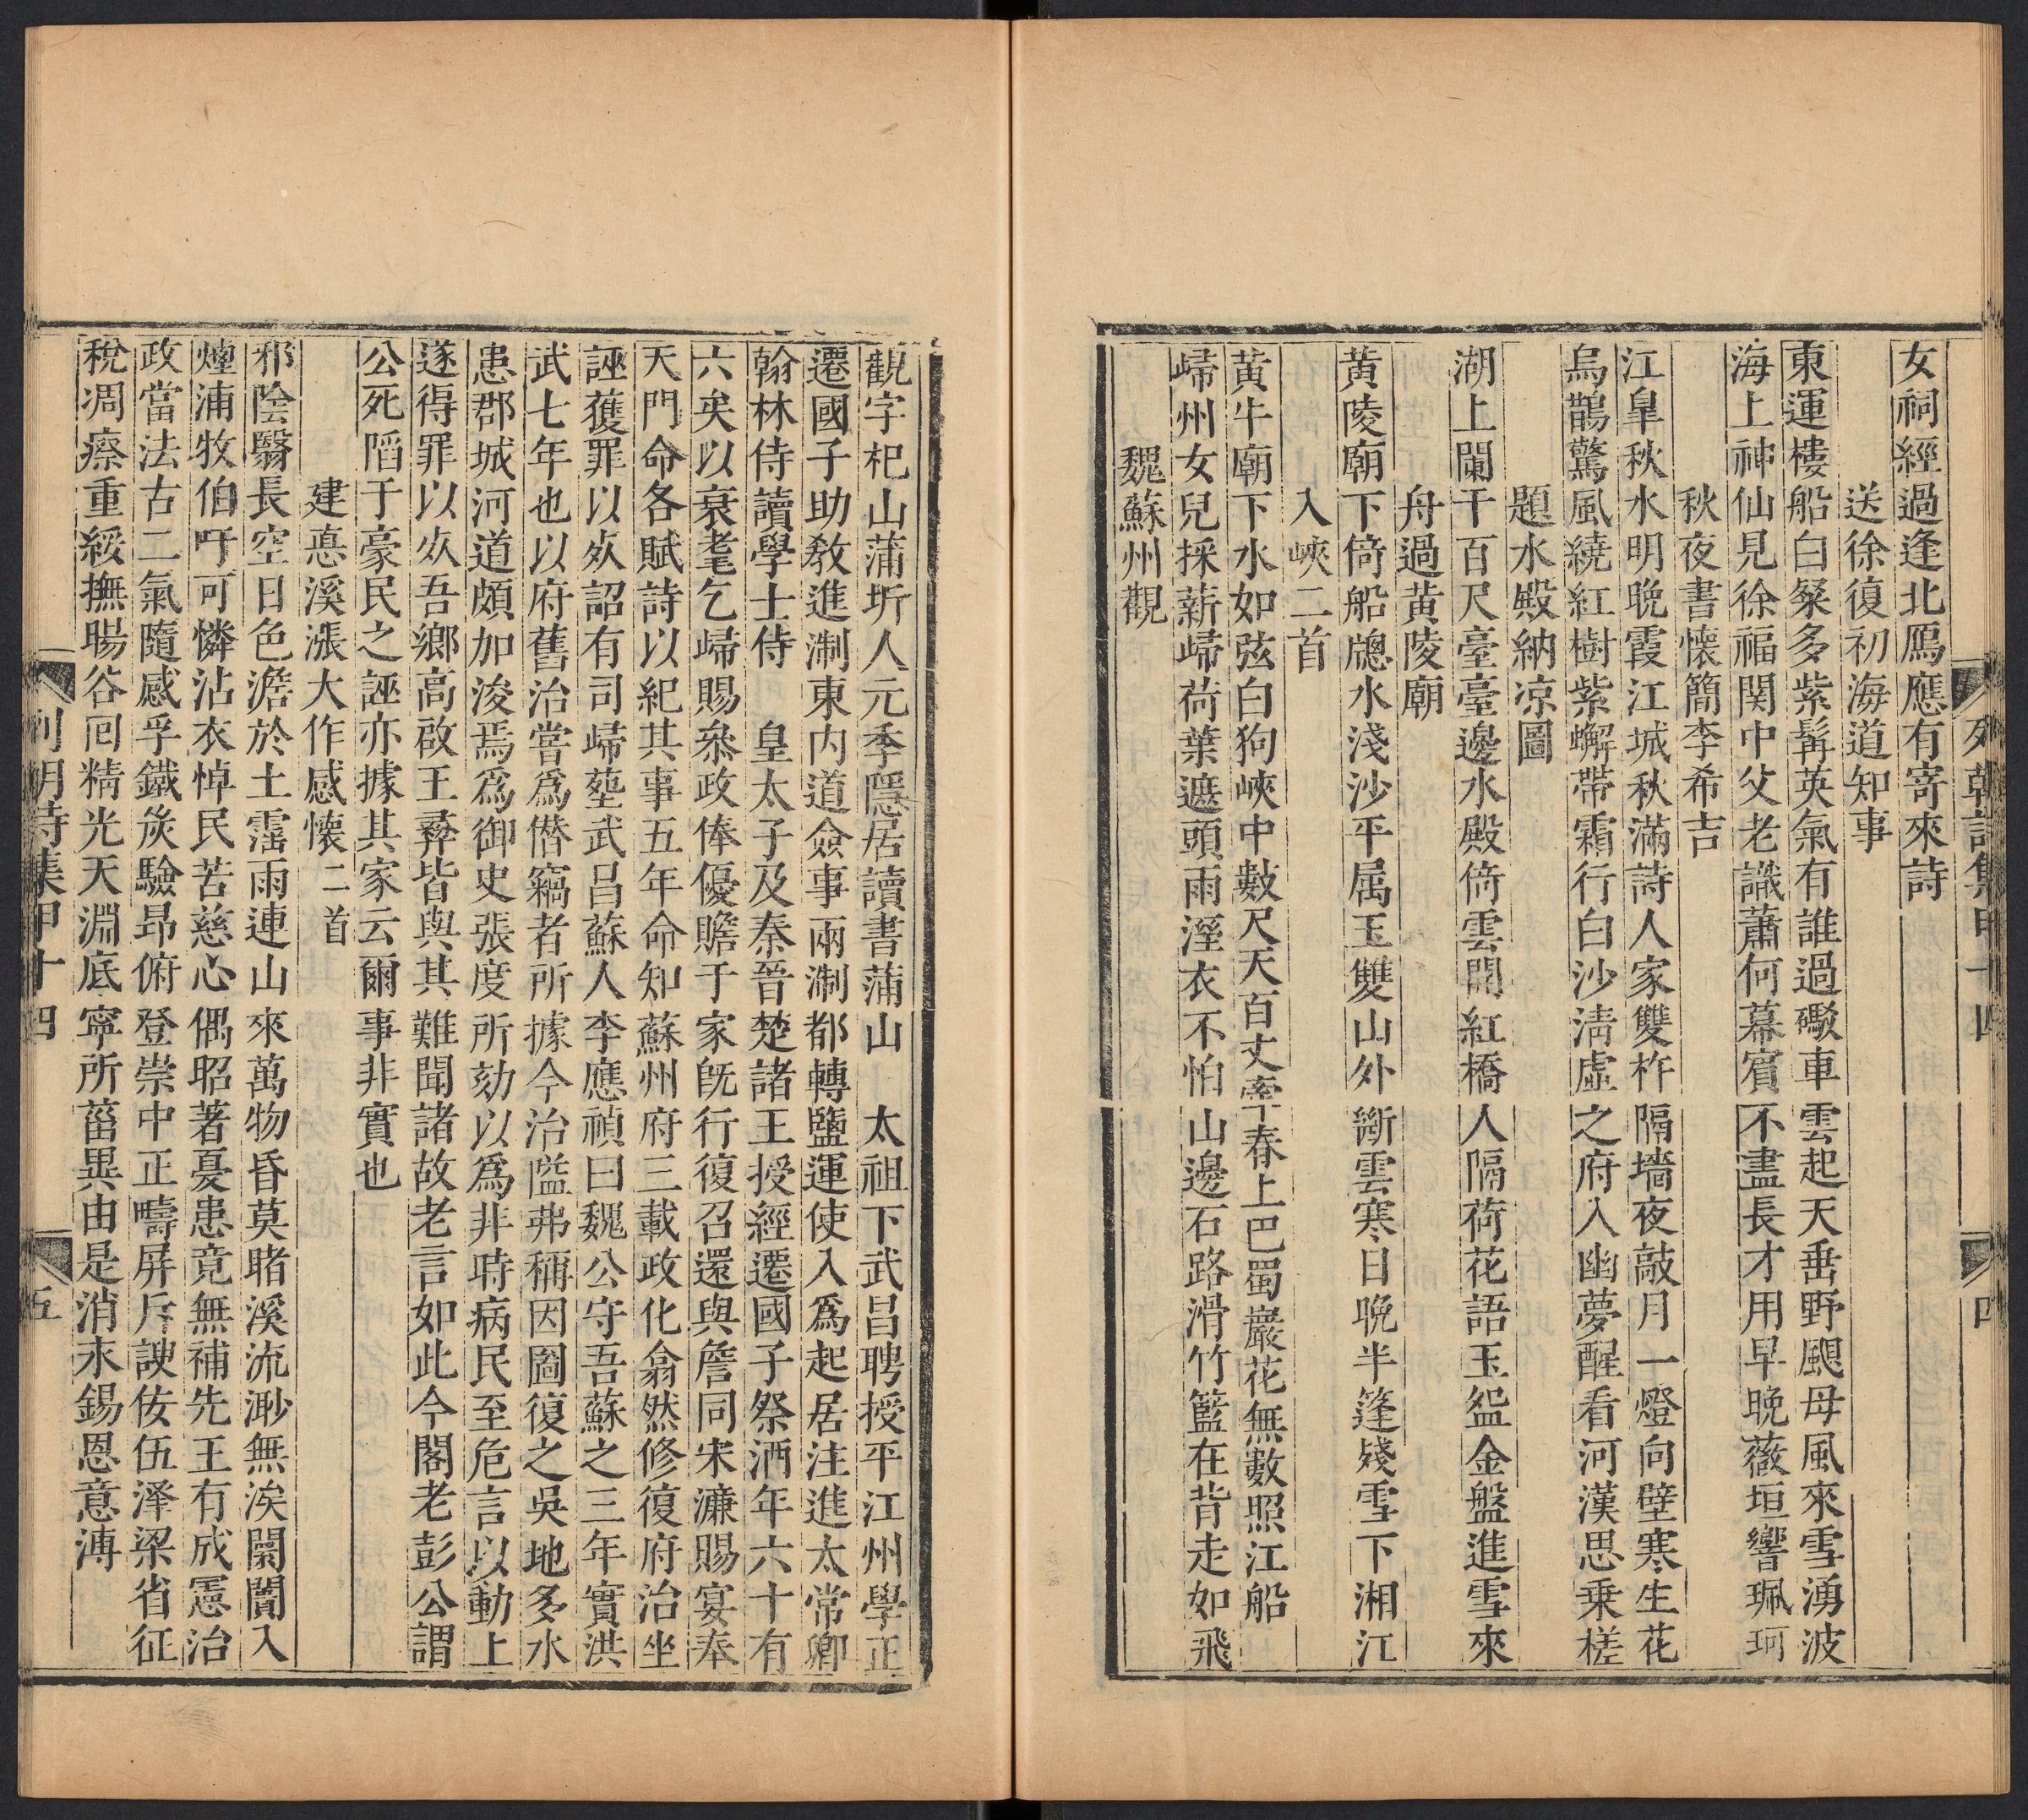 列朝詩集甲十四
四
女祠經過逢北鴈應有寄來詩
送徐復初海道知事
東運樓船白粲多紫髯英氣有誰過礮車雲起天垂野颶母風來雪湧波
海上神仙見徐福関中父老識蕭何幕賓不盡長才用早晚薇垣響珮珂
秋夜書懐簡李希吉
江臯秋水明晚霞江城秋滿詩人家雙杵隔墻夜敲月一燈向壁寒生花
烏鵲驚風繞紅樹紫蠏帶霜行白沙淸虛之府入幽夢醒看河漢思乗槎
題水殿納凉圖
湖上闌干百尺臺臺邊水殿倚雲開紅橋人隔荷花語玉盌金盤進雪來
舟過黄陵廟
黄陵廟下倚船牕水淺沙平属玉雙山外斷雲寒日晚半篷殘雪下湘江
入峽二首
黄牛廟下水如弦白狗峽中數尺天百丈牽春上巴蜀巖花無數照江船
歸州女兒採薪歸荷葉遮頭雨溼衣不怕山邊石路滑竹籃在背走如飛
魏蘇州觀
觀字杞山蒲圻人元季隱居讀書蒲山　太祖下武昌聘授平江州學正
遷國子助敎進淛東内道僉事兩淛都轉鹽運使入爲起居注進太常卿
翰林侍讀學士侍　皇太子及秦晉楚諸王授經遷國子祭酒年六十有
六矣以衰耄乞歸賜叅政俸優贍于家旣行復召還與詹同宋濂賜宴奉
天門命各賦詩以紀其事五年命知蘇州府三載政化翕然修復府治坐
誣獲罪以㱙詔有司歸塟武昌蘇人李應禎曰魏公守吾蘇之三年實洪
武七年也以府舊治嘗爲僭竊者所據今治隘弗稱因圖復之吳地多水
患郡城河道頗加浚焉爲御史張度所劾以爲非時病民至危言以動上
遂得罪以㱙吾鄉高啟王彜皆與其難聞諸故老言如此今閣老彭公謂
公死䧟于豪民之誣亦據其家云爾事非實也
建惪溪漲大作感懷二首
邪陰翳長空日色澹於土霪雨連山來萬物昏莫睹溪流渺無涘闤闠入
煙浦牧伯吁可憐沾衣悼民苦慈心偶昭著憂患竟無補先王有成憲治
政當法古二氣隨感孚鐵炭驗昂俯登崇中正疇屏斥諛佞伍泽梁省征
稅凋瘵重綏撫暘谷囘精光天淵底寧所菑異由是消求錫恩意溥
列朝詩集甲十四
五